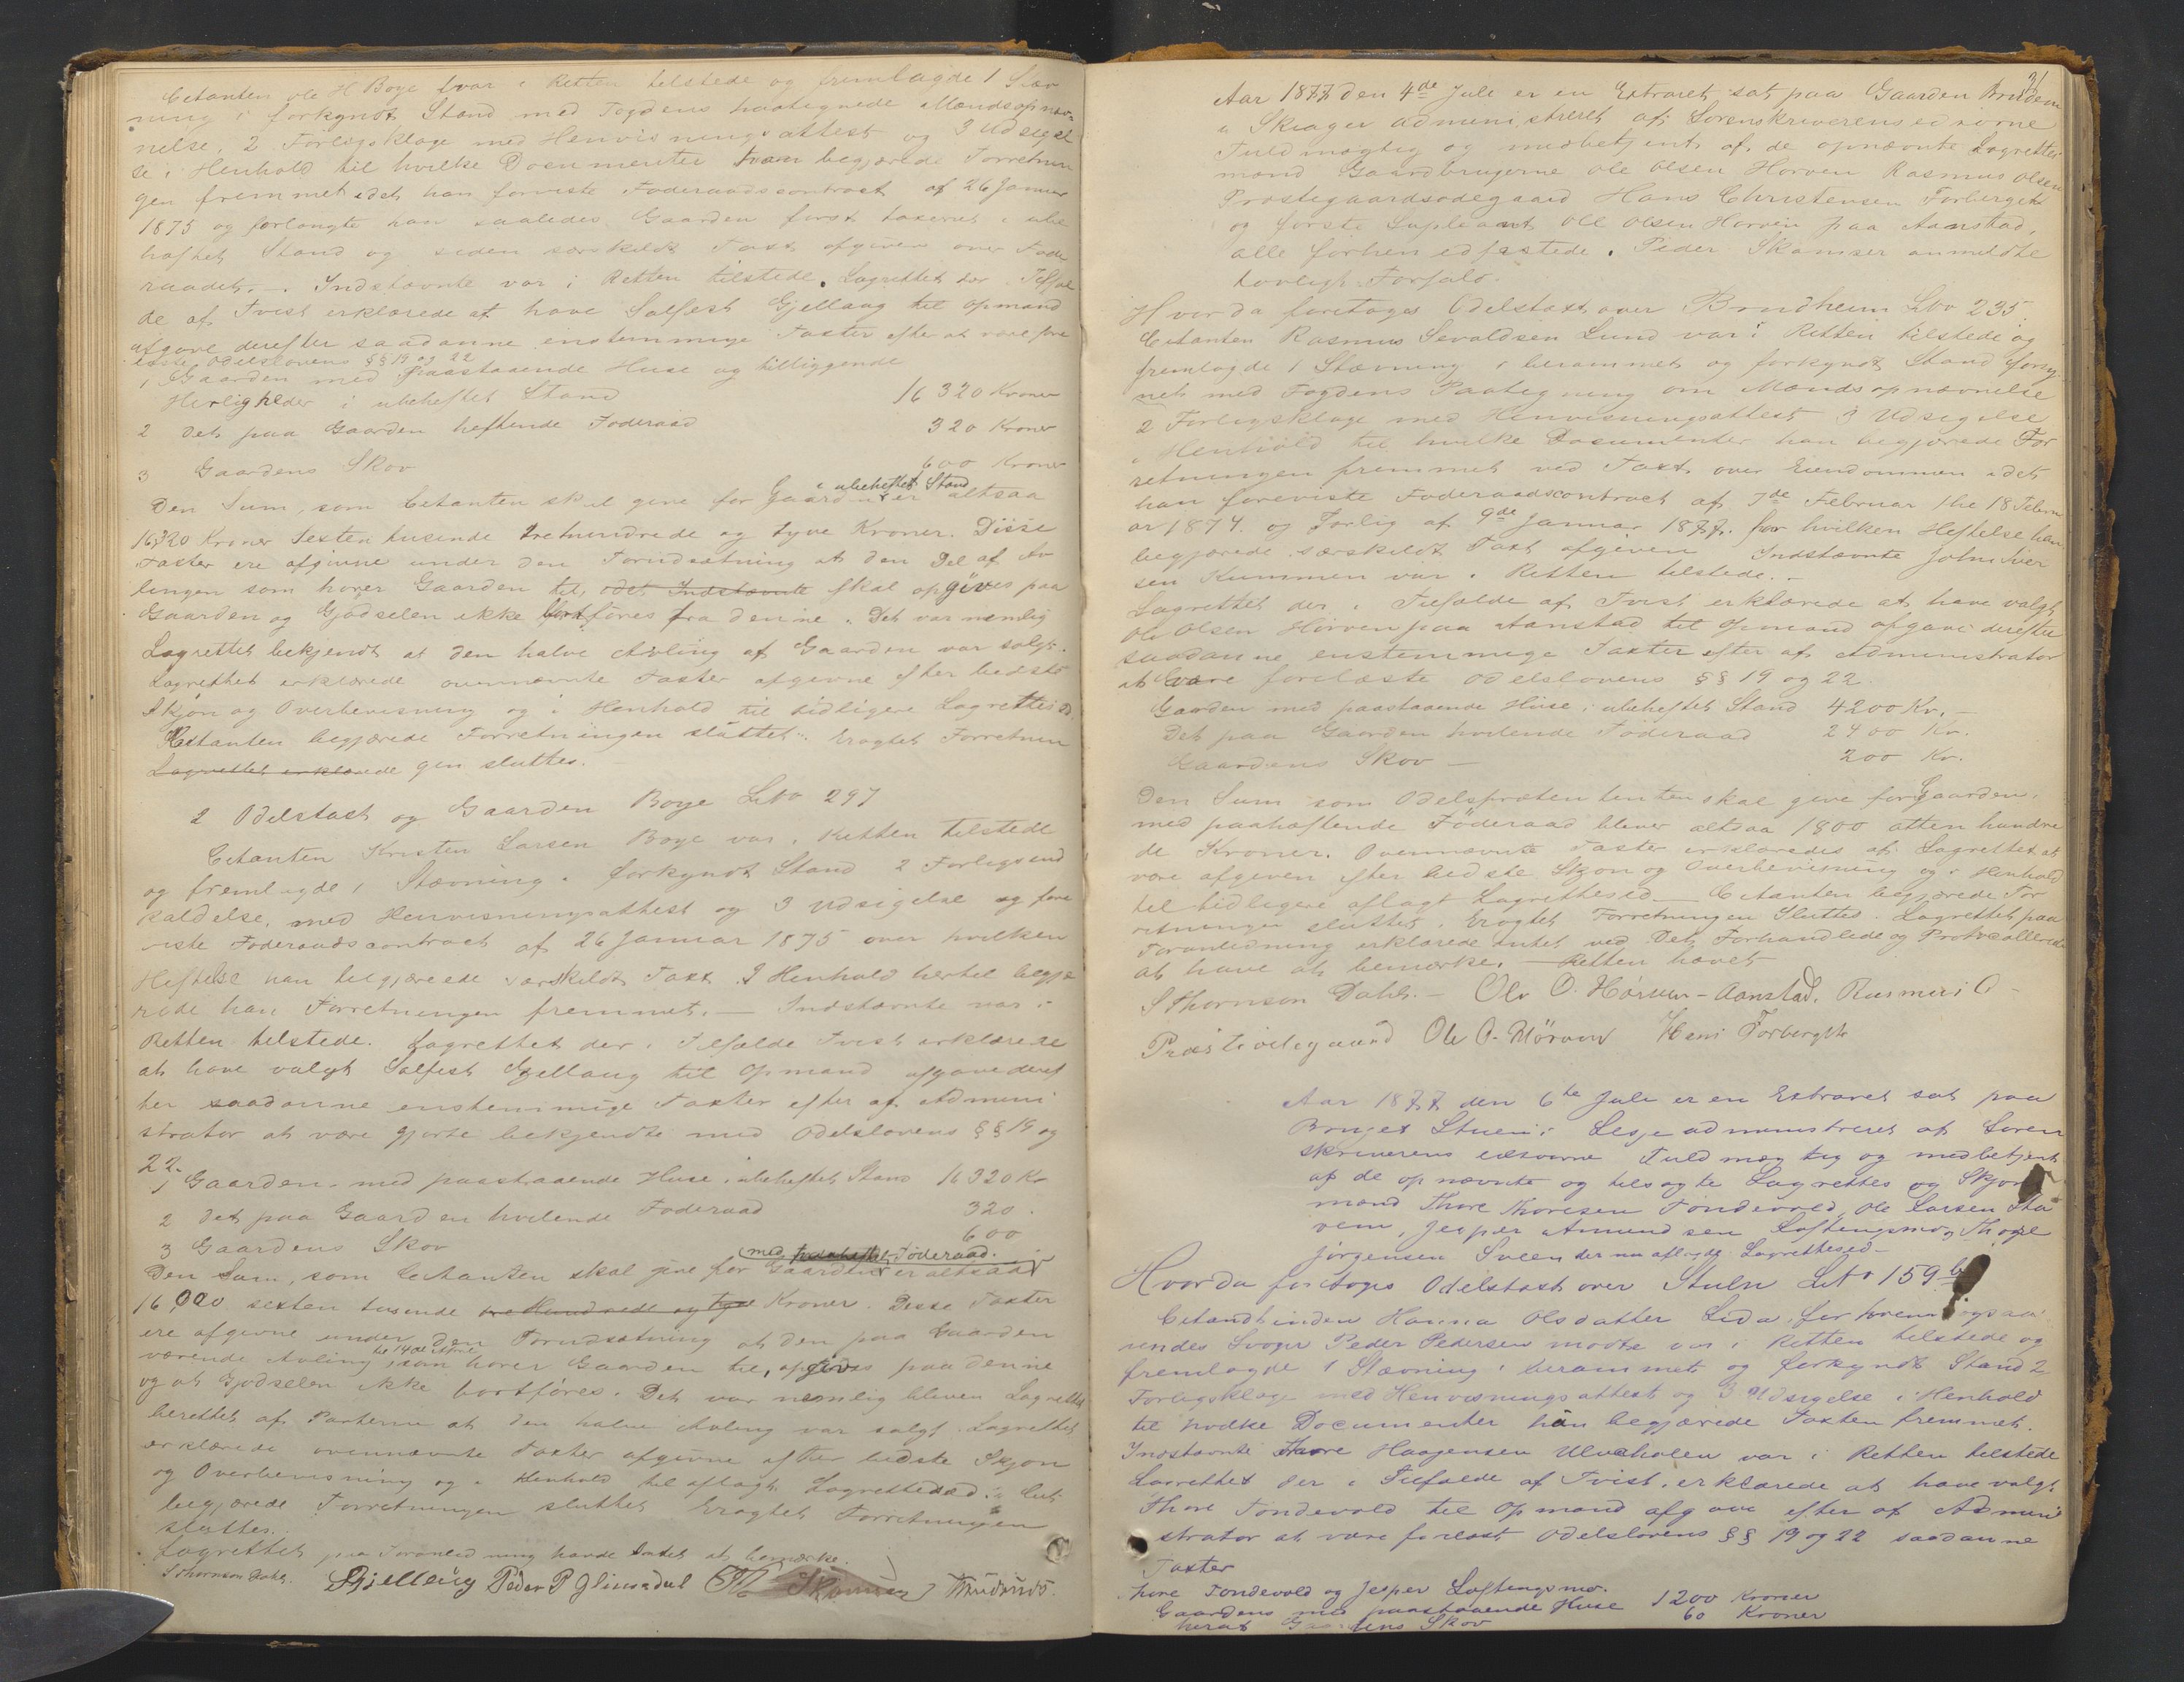 Citanten Ole H Boye var i Retten tilstede og fremlagde 1 Stæv
ning i forkyndt Stand med Fogdens paategnede Mandsopnæv-
nelse, 2 Forligsklage med Henvisningsattest og 3 Udsigel
se i Henhold til hvilke Documenter han begjærede Forretnin
gen fremmet idet han foreviste Föderaadscontract af 26 Januar
1875 og forlangte han saaledes Gaarden først taxeret i ube
hæftet Stand og siden særskildt Taxt afgiven over Föde
raadet. - Indstævnte var i Retten tilstede. Lagrettet der i Tilfæl
de af Tvist erklærede at have Salfest Gjellaug til Opmand
afgave derefter saadanne enstemmige Taxter efter at være fore
læste Odelslovens §§ 19 og 22
1 Gaarden med paastaaende Huse og tilliggende
Herligheder i ubeheftet Stand 16320 Kroner
2 det paa Gaarden heftende Föderaad 320 Kroner
3 Gaardens Skov 600 Kroner
i ubeheftet Stand
Den Sum, som Citanten skal give for Gaarden er altsaa
16320 Kroner Sexten tusende trehundrede og tyve Kroner. Disse
Taxter ere afgivne under den Forudsætning at den Del af Av
lingen som hører Gaarden til, det Indstævnte skal opgives paa
Gaarden og Gjödselen ikke bortføres fra denne. Det var nemlig
Lagrettet bekjendt at den halve Avling af Gaarden var solgt.
Lagrettet erklærede ovennævnte Taxter afgivne efter bedste
Skjøn og Overbevisning og i Henhold til tidligere Lagrettesed
Citanten begjærede Forretningen sluttet. Eragtet Forretnin
Lagrettet erklærede gen sluttes. -
2 Odelstaxt og Gaarden Boye Lbno 297
Citanten Kristen Larsen Boye var i Retten tilstede
og fremlagde 1 Stævning i forkyndt Stand 2 Forligsind
kaldelse, med Henvisningsattest og 3 Udsigelse og fore
viste Föderaadscontract af 26 Januar 1875 over hvilken
Heftelse han begjærede særskildt Taxt. I Henhold hertil begjæ
rede han Forretningen fremmet. - Indstævnte var i
Retten tilstede. Lagrettet der i Tilfælde Tvist erklærede
at have valgt Salfest Gjellaug til Opmand afgave deref
ter saadanne enstemmige Taxter efter af Admini
strator at være gjorte bekjendte med Odelslovens §§ 19 og
22.
1 Gaarden med paastaaende Huse i ubeheftet Stand 16320 Kr
2 det paa Gaarden hvilende Föderaad 320.
3 Gaardens Skov 600
med Föderaad.
Den Sum, som Citanten skal give for Gaarden er altsaa
16,000 sexten tusende tre Hundrede og tyve Kroner. Disse Taxter
ere afgivne under den Forudsætning at den paa Gaarden
værende Avling, som hører Gaarden til, opgives paa denne
og at Gjödselen ikke bortføres. Det var nemlig bleven Lagrettet
berettet af Parterne at den halve Avling var solgt. Lagrettet
erklærede ovennævnte Taxter afgivne efter bedste Skjøn
og Overbevisning og i Henhold til aflagt Lagrettesed. Cit.
begjærede Forretningen sluttet Eragtet Forretningen
sluttes.
Lagrettet paa Foranledning havde Intet at bemærke.
S Thomson Dahl. SGjellaug Peder P Glimsdal
31
Aar 1877 den 4de Juli er en Extraret sat paa Gaarden Brudem
i Skiager administreret af Sorenskriverens edsvorne
Fuldmægtig og medbetjent af de opnævnte Lagrettes
mænd Gaardbrugerne Ole Olsen Horven Rasmus Olsen
Prestegaardsødegaard Hans Christensen Forbergsk
og første Supleant Ole Olsen Horven paa Aanstad,
alle forhen edfæstede. Peder Skamser anmeldte
lovligt Forfald.
Hvorda foretoges Odelstaxt over Brudheim Lbno 235.
Citanten Rasmus Sevaldsen Lund var i Retten tilstede og
fremlagde 1 Stævning i berammet og forkyndt Stand forsy
net med Fogdens Paategning om Mandsopnævnelse
2 Forligsklage med Henvisningsattest 3 Udsigelse
i Henhold til hvilke Documenter han begjærede For
retningen fremmet ved Taxt over Eiendommen idet
han foreviste Föderaadscontract af 7de Februar thl 18 Febru
ar 1874. og Forlig af 9de Januar 1877. for hvilken Heftelse han
begjærede særskildt Taxt afgiven Indstævnte John Iver
sen Kummen var i Retten tilstede. -
Lagrettet der i Tilfælde af Tvist erklærede at have valgt
Ole Olsen Hörven paa Aanstad til Opmand afgave derefter
saadanne enstemmige Taxter efter af Administrator
at være forelæste Odelslovens §§ 19 og 22.
Gaarden med paastaaende Huse i ubeheftet Stand 4200 Kr. -
Det paa Gaarden hvilende Föderaad 2400 Kr.
Gaardens Skov - 200 Kr.
Den Sum som Odelsprætendenten skal give for Gaarden,
med paahæftende Föderaad bliver altsaa 1800 atten hundre
de Kroner. Ovennævnte Taxter erklæredes af Lagrettet at
være afgiven efter bedste Skjøn og Overbevisning og i Henhold
til tidligere aflagt Lagrettesed - Citanten begjærede For
retningen sluttet. Eragtet Forretningen Sluttes. Lagrettet paa
Foranledning erklærede Intet ved Det Forhandlede og Protocollerede
at have at bemærke. - Retten hævet
S Thomson Dahl. - Ole O. Hörven - Aanstad. Rasmus O -
Ole O. Hörven Hans Forbergsk
Aar 1877 den 6te Juli er en Extraret sat paa
Stuen i Lesje administreret af Soren
skriverens edsvorne Fuldmægtig og medbetjent
af de opnævnte og tilsagte Lagrettes og Skjøns
mænd Thore Thoresen Tondevold, Ole Larsen Sta
vem, Jesper Amundsen Loftengsmo, Thore
Jørgensen Sveen der nu aflagde Lagrettesed -
Hvorda foretoges Odelstaxt over Stuen Lbno 159b
Citantinden Hanna Olsdatter Lida, for hvem
Svoger Peder Pedersen mødte var i Retten tilstede og
fremlagde 1 Stævning i berammet og forkyndt Stand 2
Forligsklage med Henvisningsattest og 3 Udsigelse i Henhold
til hvilke Documenter han begjærede Taxten fremmet.
Indstævnte Thore Haagensen Ulveholen var i Retten tilstede
Lagrettet der i Tilfælde af Tvist, erklærede at have valgt
Thore Tondevold til Opmand afgave efter af Admini
strator at være forelæst Odelslovens §§ 19 og 22 saadanne
Taxter
Thore Tondevold og Jesper Loftengsmo.
Gaardens med paastaaende Huse 1200 Kroner
heraf Gaardens Skov 60 Kroner